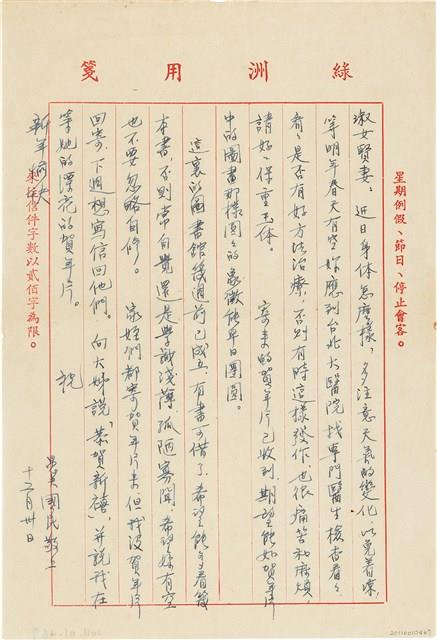 綠洲用箋
星期例假、節日、停止會客。
淑女賢妻：近日身体怎麼樣，多注意天氣的變化，以免着凉，
等明年春天有空，妳應到台北大醫院找專門醫生檢查看看，
看看是否有好方法治療，否則有時這樣發作，也很痛苦和麻煩，
請好好保重玉体。　寄來的賀年片已收到，期望能如賀年片
中的圖畫那樣圓圓的象徵能早日團圓。
這裏的圖書館幾週前已成立，有書可借了，希望能多看幾
本書，否則常自覺還是學識淺薄孤陋寡聞，希望妳有空
也不要忽略自修。　家姪們都寄賀年片來，但我沒賀年片
回寄，下週想寫信回他們。　向大姊說「恭賀新禧」，并說我在
等她的漂亮的賀年片。　祝
新年愉快
國民敬上
十二月卅日
來往信件字數以貳佰字為限。